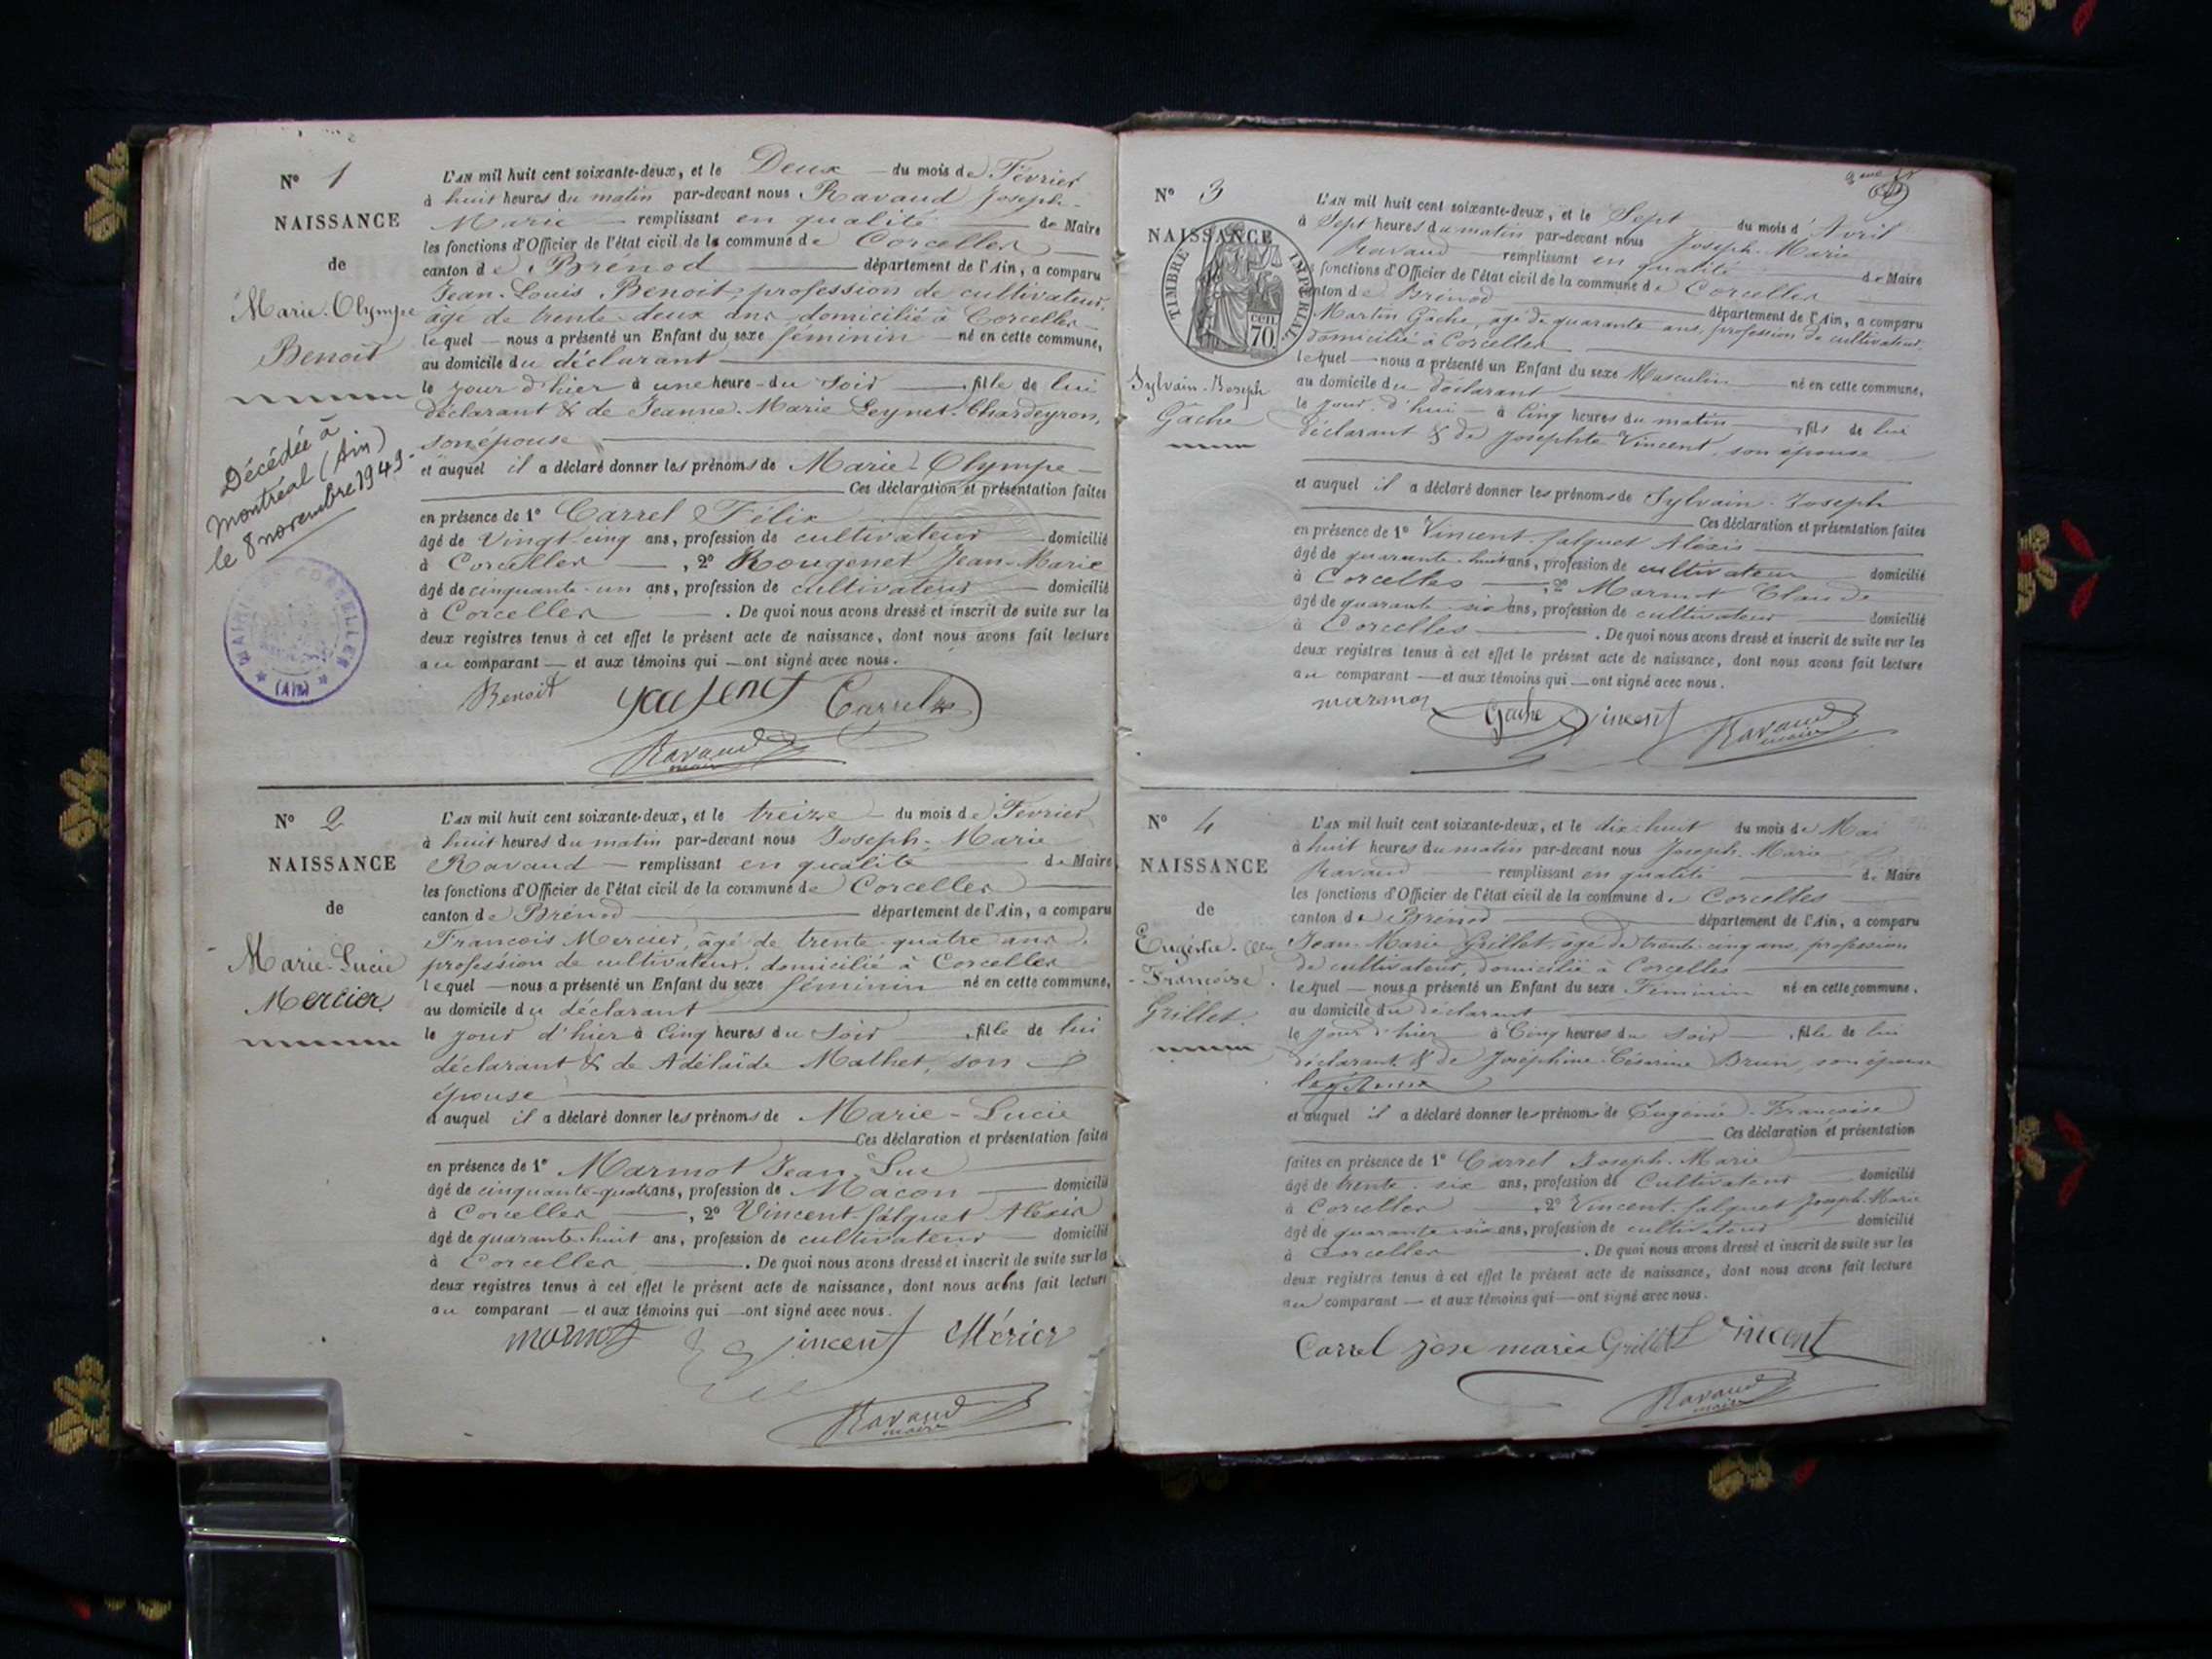 N° 1
NAISSANCE
de
Marie-Olympe
Benoit
Décédée à
Montréal (Ain)
le 8 novembre 1949.
MAIRIE DE CORCELLES
(AIN)
L'AN mil huit cent soixante-deux, et le Deux du mois de Février
à huit heures du matin par-devant nous Ravaud Joseph-
Marie remplissant en qualité de Maire
les fonctions d'Officier de l'état civil de la commune de Corcelles
canton de Brénod département de l'Ain, a comparu
Jean-Louis Benoit, profession de cultivateur,
âgé de trente-deux ans domicilié à Corcelles
lequel nous a présenté un Enfant du sexe féminin né en cette commune,
au domicile du déclarant
le jour d'hier à une heure du soir, fille de lui
déclarant & de Jeanne-Marie Leynet-Chardeyron,
son épouse
et auquel il a déclaré donner les prénoms de Marie-Olympe
Ces déclaration et présentation faites
en présence de 1° Carrel Félix
âgé de vingt-cinq ans, profession de cultivateur domicilié
à Corcelles, 2° Rougenet Jean-Marie
âgé de cinquante-un ans, profession de cultivateur domicilié
à Corcelles. De quoi nous avons dressé et inscrit de suite sur les
deux registres tenus à cet effet le présent acte de naissance, dont nous avons fait lecture
au comparant et aux témoins qui ont signé avec nous.
Benoit Carrel
Ravaud
maire
N° 2
NAISSANCE
de
Marie-Lucie
Mercier
L'AN mil huit cent soixante-deux, et le treize du mois de Février
à huit heures du matin par-devant nous Joseph-Marie
Ravaud remplissant en qualité de Maire
les fonctions d'Officier de l'état civil de la commune de Corcelles
canton de Brénod département de l'Ain, a comparu
François Mercier, âgé de trente-quatre ans,
profession de cultivateur, domicilié à Corcelles
lequel nous a présenté un Enfant du sexe féminin né en cette commune,
au domicile du déclarant
le jour d'hier à Cinq heures du soir, fille de lui
déclarant & de Adélaïde Mathet, son
épouse
et auquel il a déclaré donner les prénoms de Marie-Lucie
Ces déclaration et présentation faites
en présence de 1° Marmot Jean-Luc
âgé de cinquante-quatre ans, profession de Macon domicilié
à Corcelles, 2° Vincent-falquet Alexis
âgé de quarante-huit ans, profession de cultivateur domicilié
à Corcelles. De quoi nous avons dressé et inscrit de suite sur les
deux registres tenus à cet effet le présent acte de naissance, dont nous avons fait lecture
au comparant et aux témoins qui ont signé avec nous.
marmot Vincent Mérier
Ravaud
maire
N° 3
NAISSANCE
TIMBRE IMPÉRIAL
70 cen
Sylvain-Joseph
Gâche
L'AN mil huit cent soixante-deux, et le Sept du mois d'Avril
à Sept heures du matin par-devant nous Joseph-Marie
Ravaud remplissant en qualité de Maire
les fonctions d'Officier de l'état civil de la commune de Corcelles
canton de Brénod département de l'Ain, a comparu
Martin Gâche, âgé de quarante ans, profession de cultivateur,
domicilié à Corcelles
lequel nous a présenté un Enfant du sexe Masculin né en cette commune,
au domicile du déclarant
le jour d'hui à Cinq heures du matin, fils de lui
déclarant & de Josephte Vincent, son épouse
et auquel il a déclaré donner les prénoms de Sylvain-Joseph
Ces déclaration et présentation faites
en présence de 1° Vincent-falquet Aléxis
âgé de quarante-huit ans, profession de cultivateur domicilié
à Corcelles, 2° Marmot Claude
âgé de quarante-six ans, profession de cultivateur domicilié
à Corcelles. De quoi nous avons dressé et inscrit de suite sur les
deux registres tenus à cet effet le présent acte de naissance, dont nous avons fait lecture
au comparant et aux témoins qui ont signé avec nous.
marmot Gache Vincent Ravaud
maire
N° 4
NAISSANCE
de
Eugénie
-Françoise
Grillet
L'AN mil huit cent soixante-deux, et le dix-huit du mois de Mai
à huit heures du matin par-devant nous Joseph-Marie
Ravaud remplissant en qualité de Maire
les fonctions d'Officier de l'état civil de la commune de Corcelles
canton de Brénod département de l'Ain, a comparu
Jean-Marie Grillet, âgé de trente-cinq ans, profession
de cultivateur, domicilié à Corcelles
lequel nous a présenté un Enfant du sexe Féminin né en cette commune,
au domicile du déclarant
le jour d'hier à Cinq heures du soir, fille de lui
déclarant & de Joséphine-Césarine Brun, son épouse
et auquel il a déclaré donner les prénoms de Eugénie-Françoise
Ces déclaration et présentation
faites en présence de 1° Carrel Joseph-Marie
âgé de trente-six ans, profession de Cultivateur domicilié
à Corcelles, 2° Vincent-falquet Joseph-Marie
âgé de quarante-six ans, profession de cultivateur domicilié
à Corcelles. De quoi nous avons dressé et inscrit de suite sur les
deux registres tenus à cet effet le présent acte de naissance, dont nous avons fait lecture
au comparant et aux témoins qui ont signé avec nous.
Carrel jose maria Grillet Vincent
Ravaud
maire